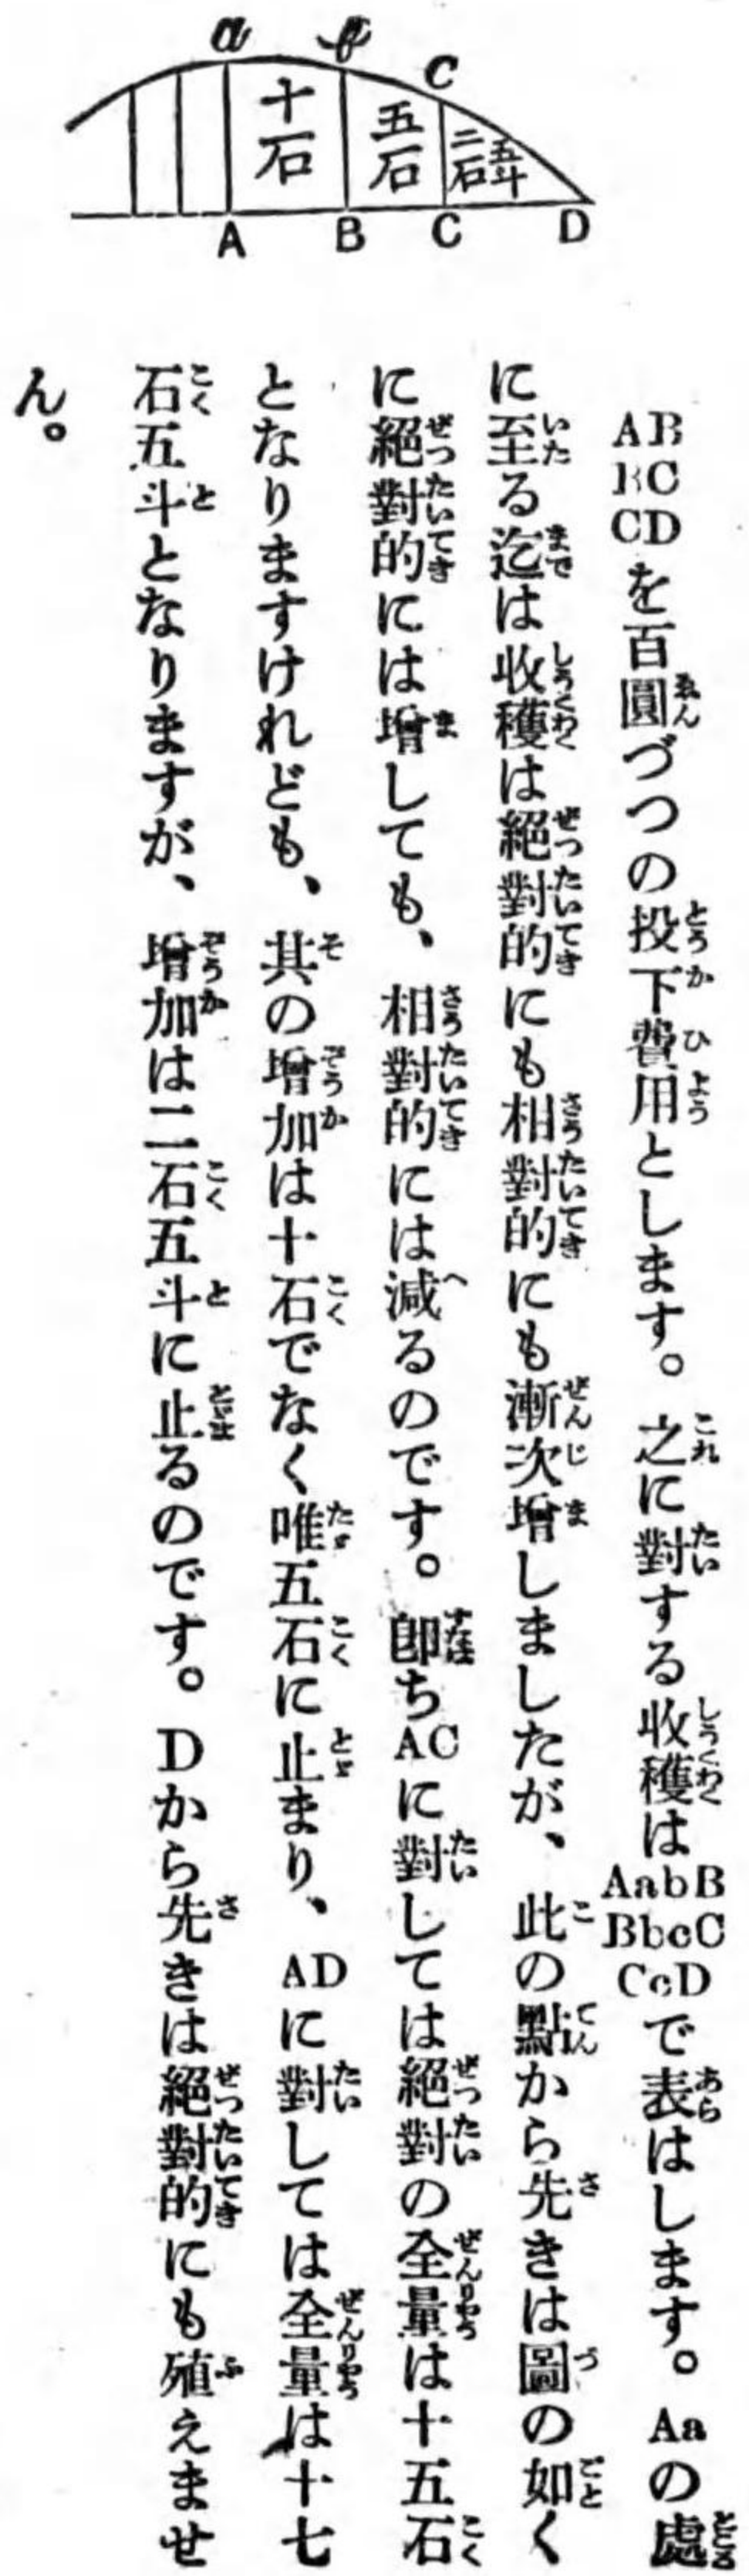 a b C
十石 五石 二石五斗
A B C D
AB BC CD を百圓づつの投下費用とします。之に對する收穫は AabB BbcC CcD で表はします。Aaの處
に至る迄は收穫は絕對的にも相對的にも漸次增しましたが、此の點から先きは圖の如く
に絕對的には增しても、相對的には減るのです。卽ちACに對しては絕對の全量は十五石
となりますけれども、其の增加は十石でなく唯五石に止まり、ADに對しては全量は十七
石五斗となりますが、增加は二石五斗に止るのです。Dから先きは絕對的にも殖えませ
ん。